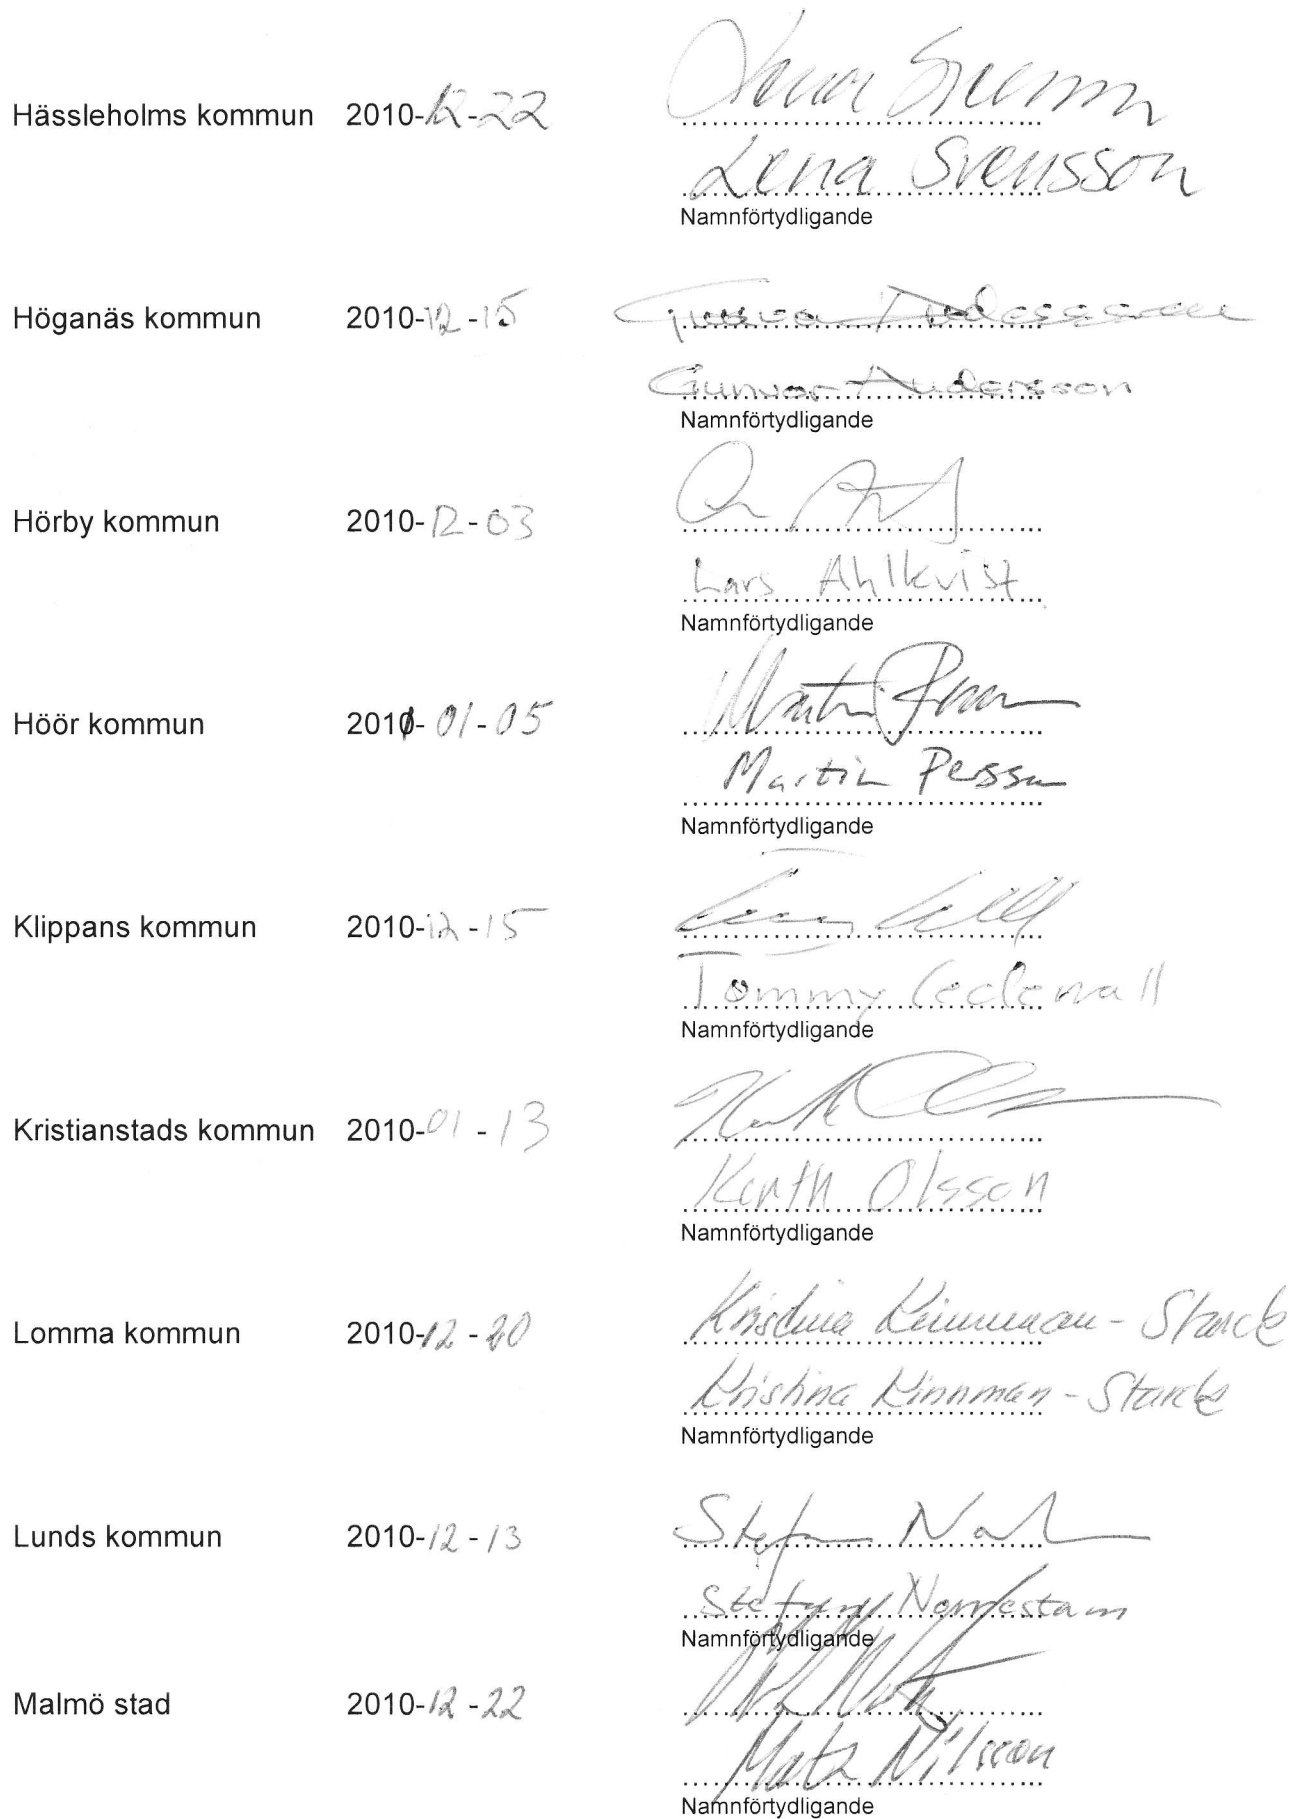 Hässleholms kommun 2010-12-22 Lena Svensson
Lena Svensson
Namnförtydligande
Höganäs kommun 2010-12-15 Gunvor Andersson
Gunvor Andersson
Namnförtydligande
Hörby kommun 2010-12-03
Lars Ahlkvist
Namnförtydligande
Höör kommun 2011-01-05 Martin Persson
Martin Persson
Namnförtydligande
Klippans kommun 2010-12-15
Tommy Cedervall
Namnförtydligande
Kristianstads kommun 2010-01-13
Kenth Olsson
Namnförtydligande
Lomma kommun 2010-12-20 Kristina Kinnman-Starck
Kristina Kinnman-Starck
Namnförtydligande
Lunds kommun 2010-12-13 Stefan
Stefan Norrestam
Namnförtydligande
Malmö stad 2010-12-22
Mats Nilsson
Namnförtydligande